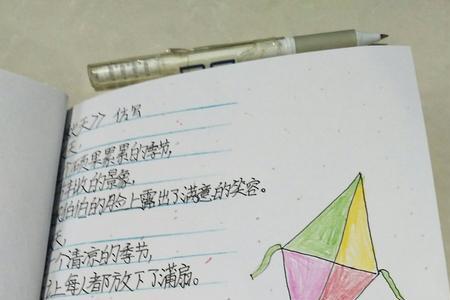 秋天》 仿写
天，
硕果累累的季节，
丰收的景象，
的脸上露出了满意的笑容。
天，
个清凉的季节，
上每人都放下了满扇。